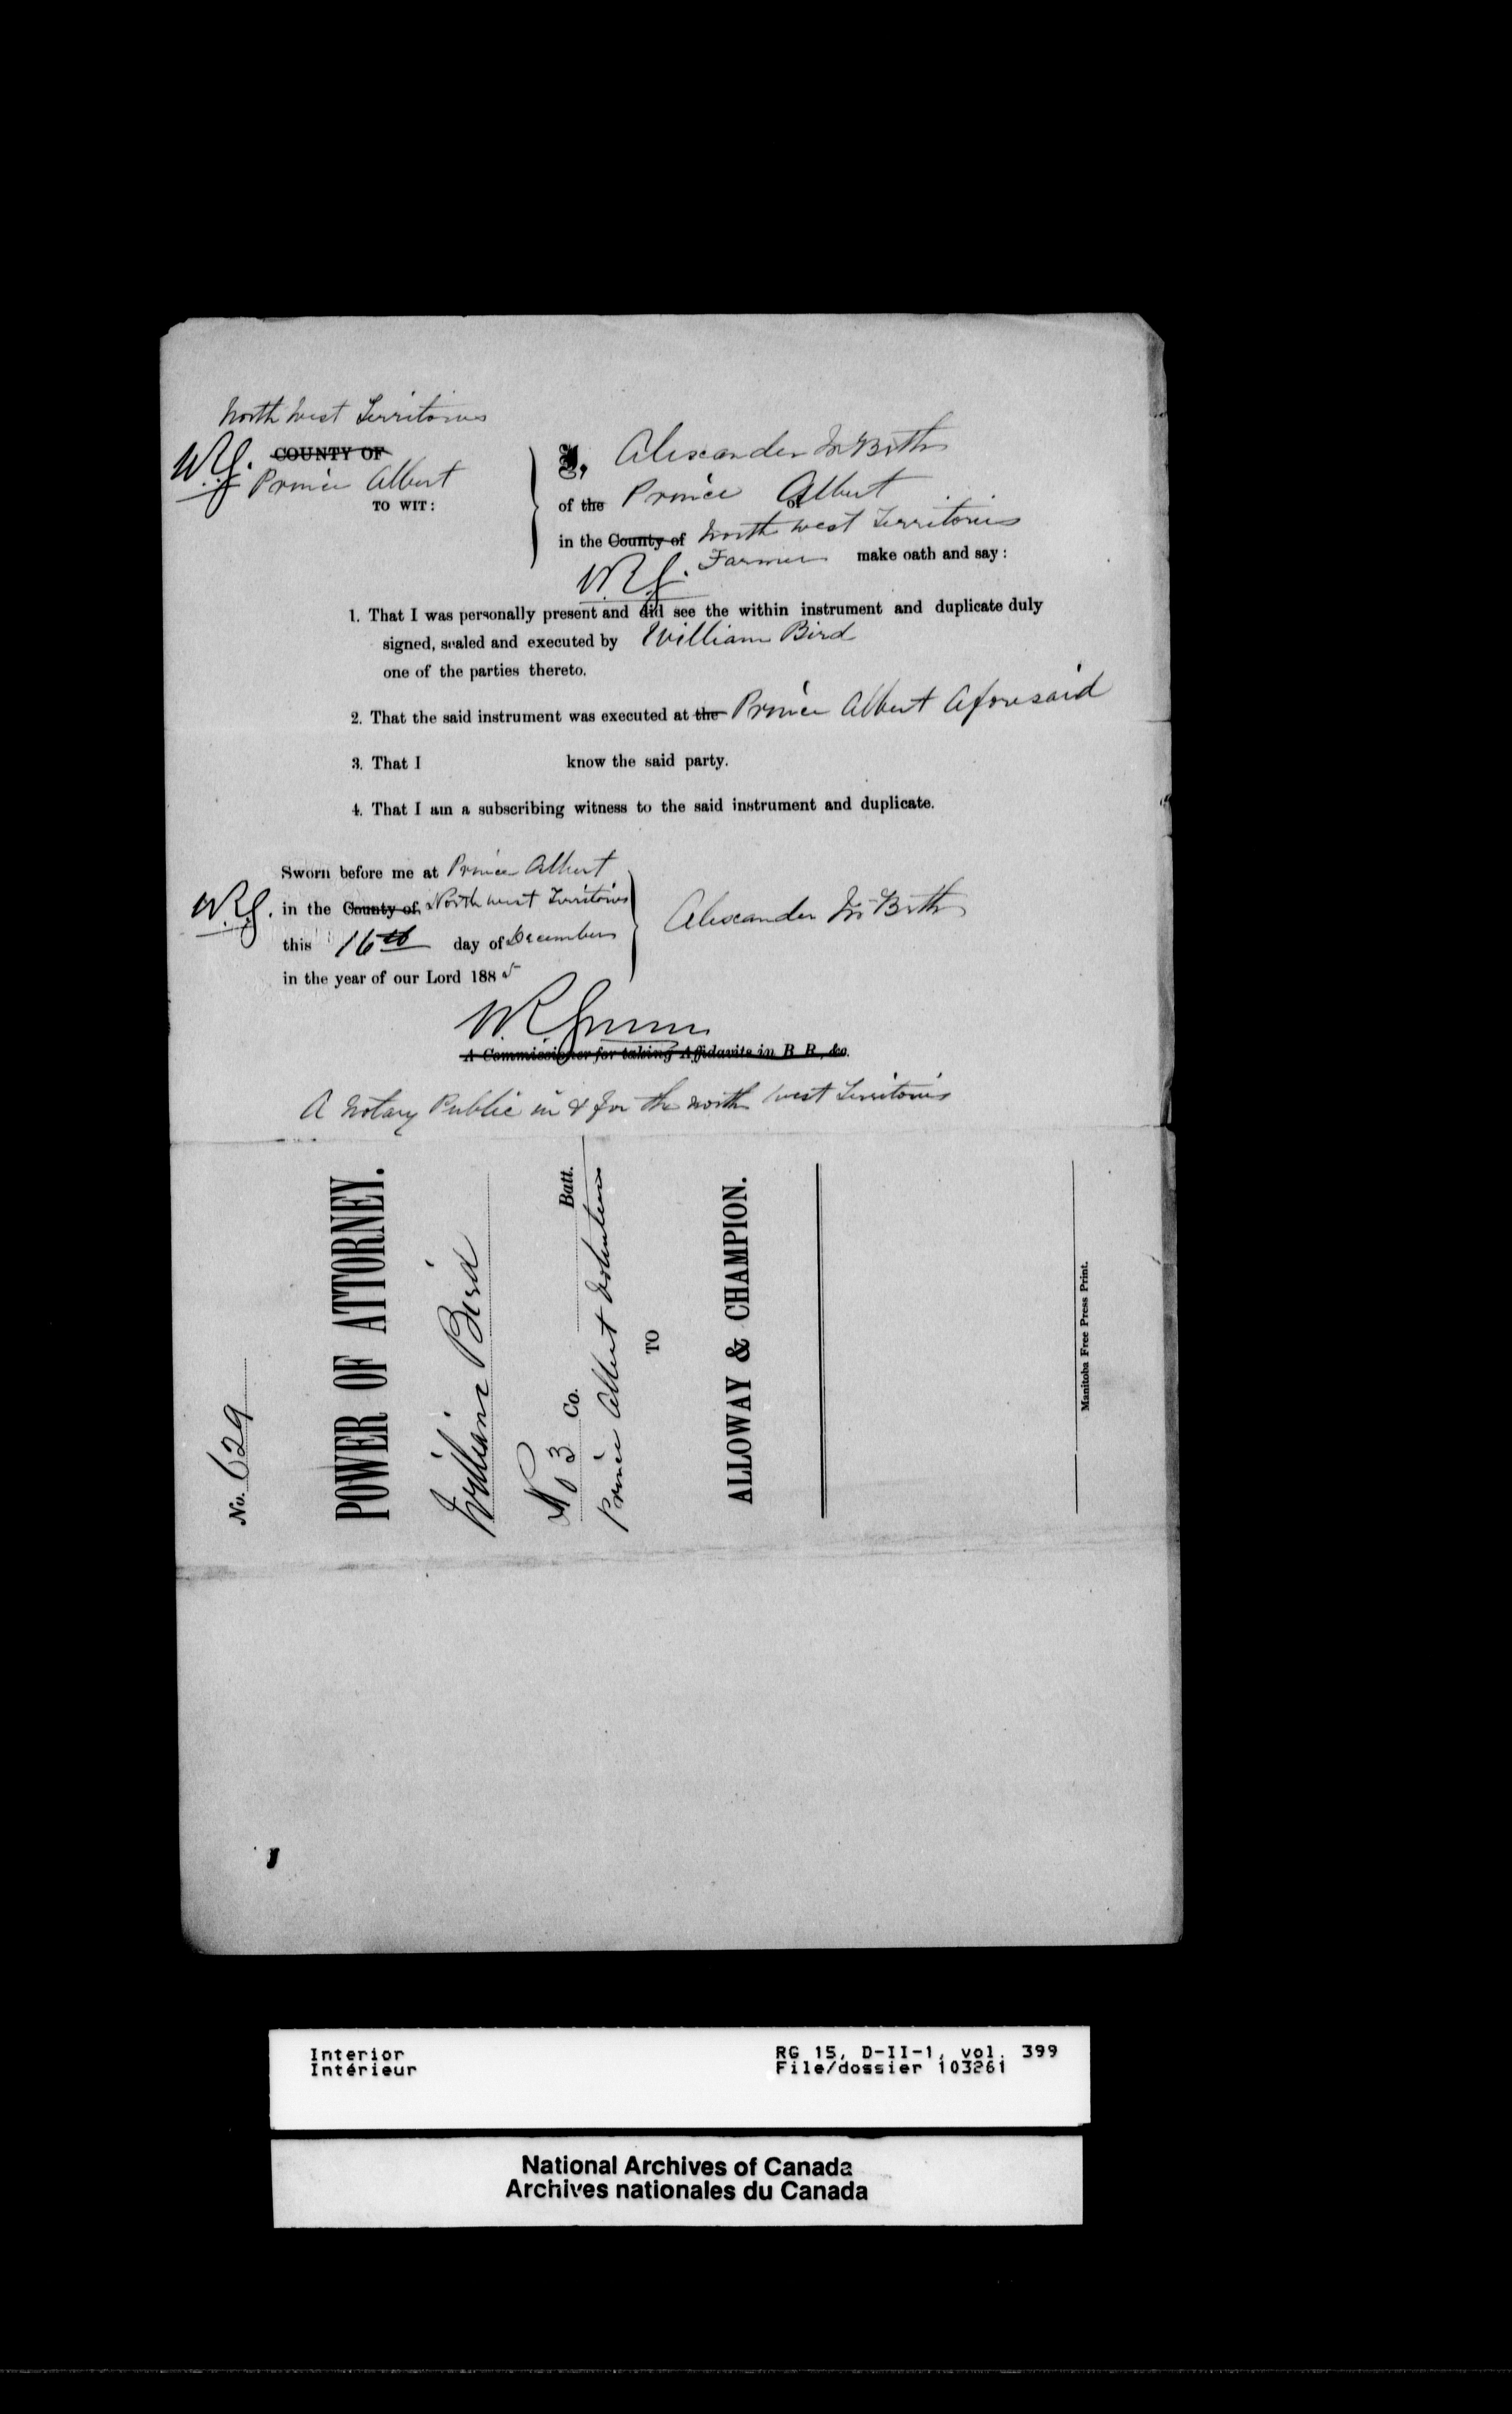 North West Territories
W.R.G. COUNTY OF
Prince Albert
TO WIT:
I, Alexander McBeth
of the Prince Albert of
in the County of North West Territories
W.R.G. Farmer make oath and say:
1. That I was personally present and did see the within instrument and duplicate duly
signed, sealed and executed by William Bird
one of the parties thereto.
2. That the said instrument was executed at the Prince Albert Aforesaid
3. That I know the said party.
4. That I am a subscribing witness to the said instrument and duplicate.
Sworn before me at Prince Albert
W.R.G. in the County of North West Territories
this 16th day of December
in the year of our Lord 1885
Alexander McBeth
W.R. Gunn
A Commissioner for taking Affidavits in B. R., &c.
A Notary Public in & for the North West Territories
No. 629
POWER OF ATTORNEY.
William Bird
No 3 Co. Batt.
Prince Albert Volunteers
TO
ALLOWAY & CHAMPION.
Manitoba Free Press Print.
Interior
Intérieur
RG 15, D-II-1, vol. 399
File/dossier 103261
National Archives of Canada
Archives nationales du Canada